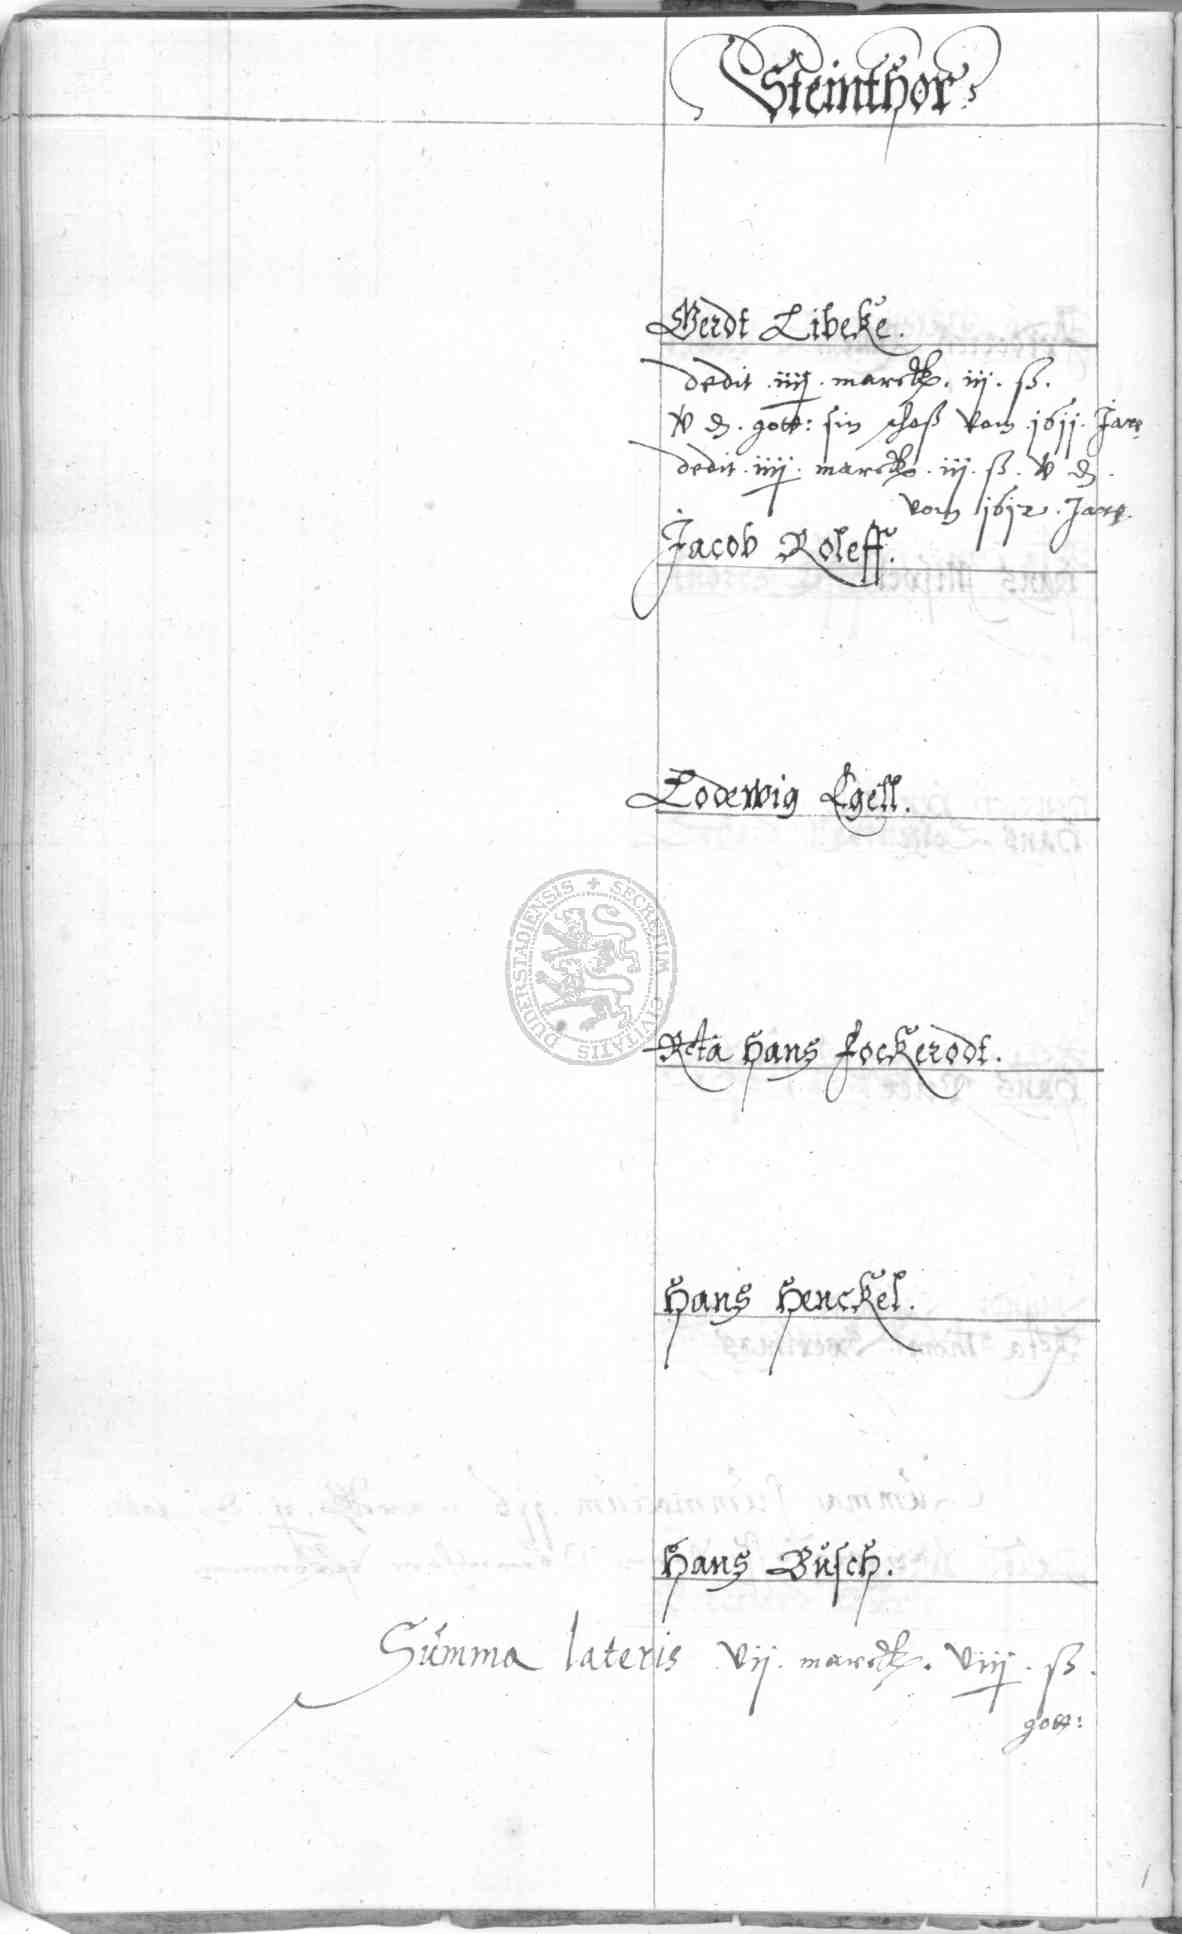 Steinthor
Gerdt Libeke.
dedit . iiij . marck . iij . ß .
v d . gott: sin schoß vom . 1611 . Jare
dedit . iiij . marck . iij . ß . v d .
vom 1612 . Jare .
Jacob Roleff .
Lodewig Egell .
SECRETUM CIVITATIS DUDERSTADIENSIS
Rcta Hans Fockerodt .
Hans Henckel .
Hans Busch .
Summa lateris vij . marck . viij . ß .
gott: